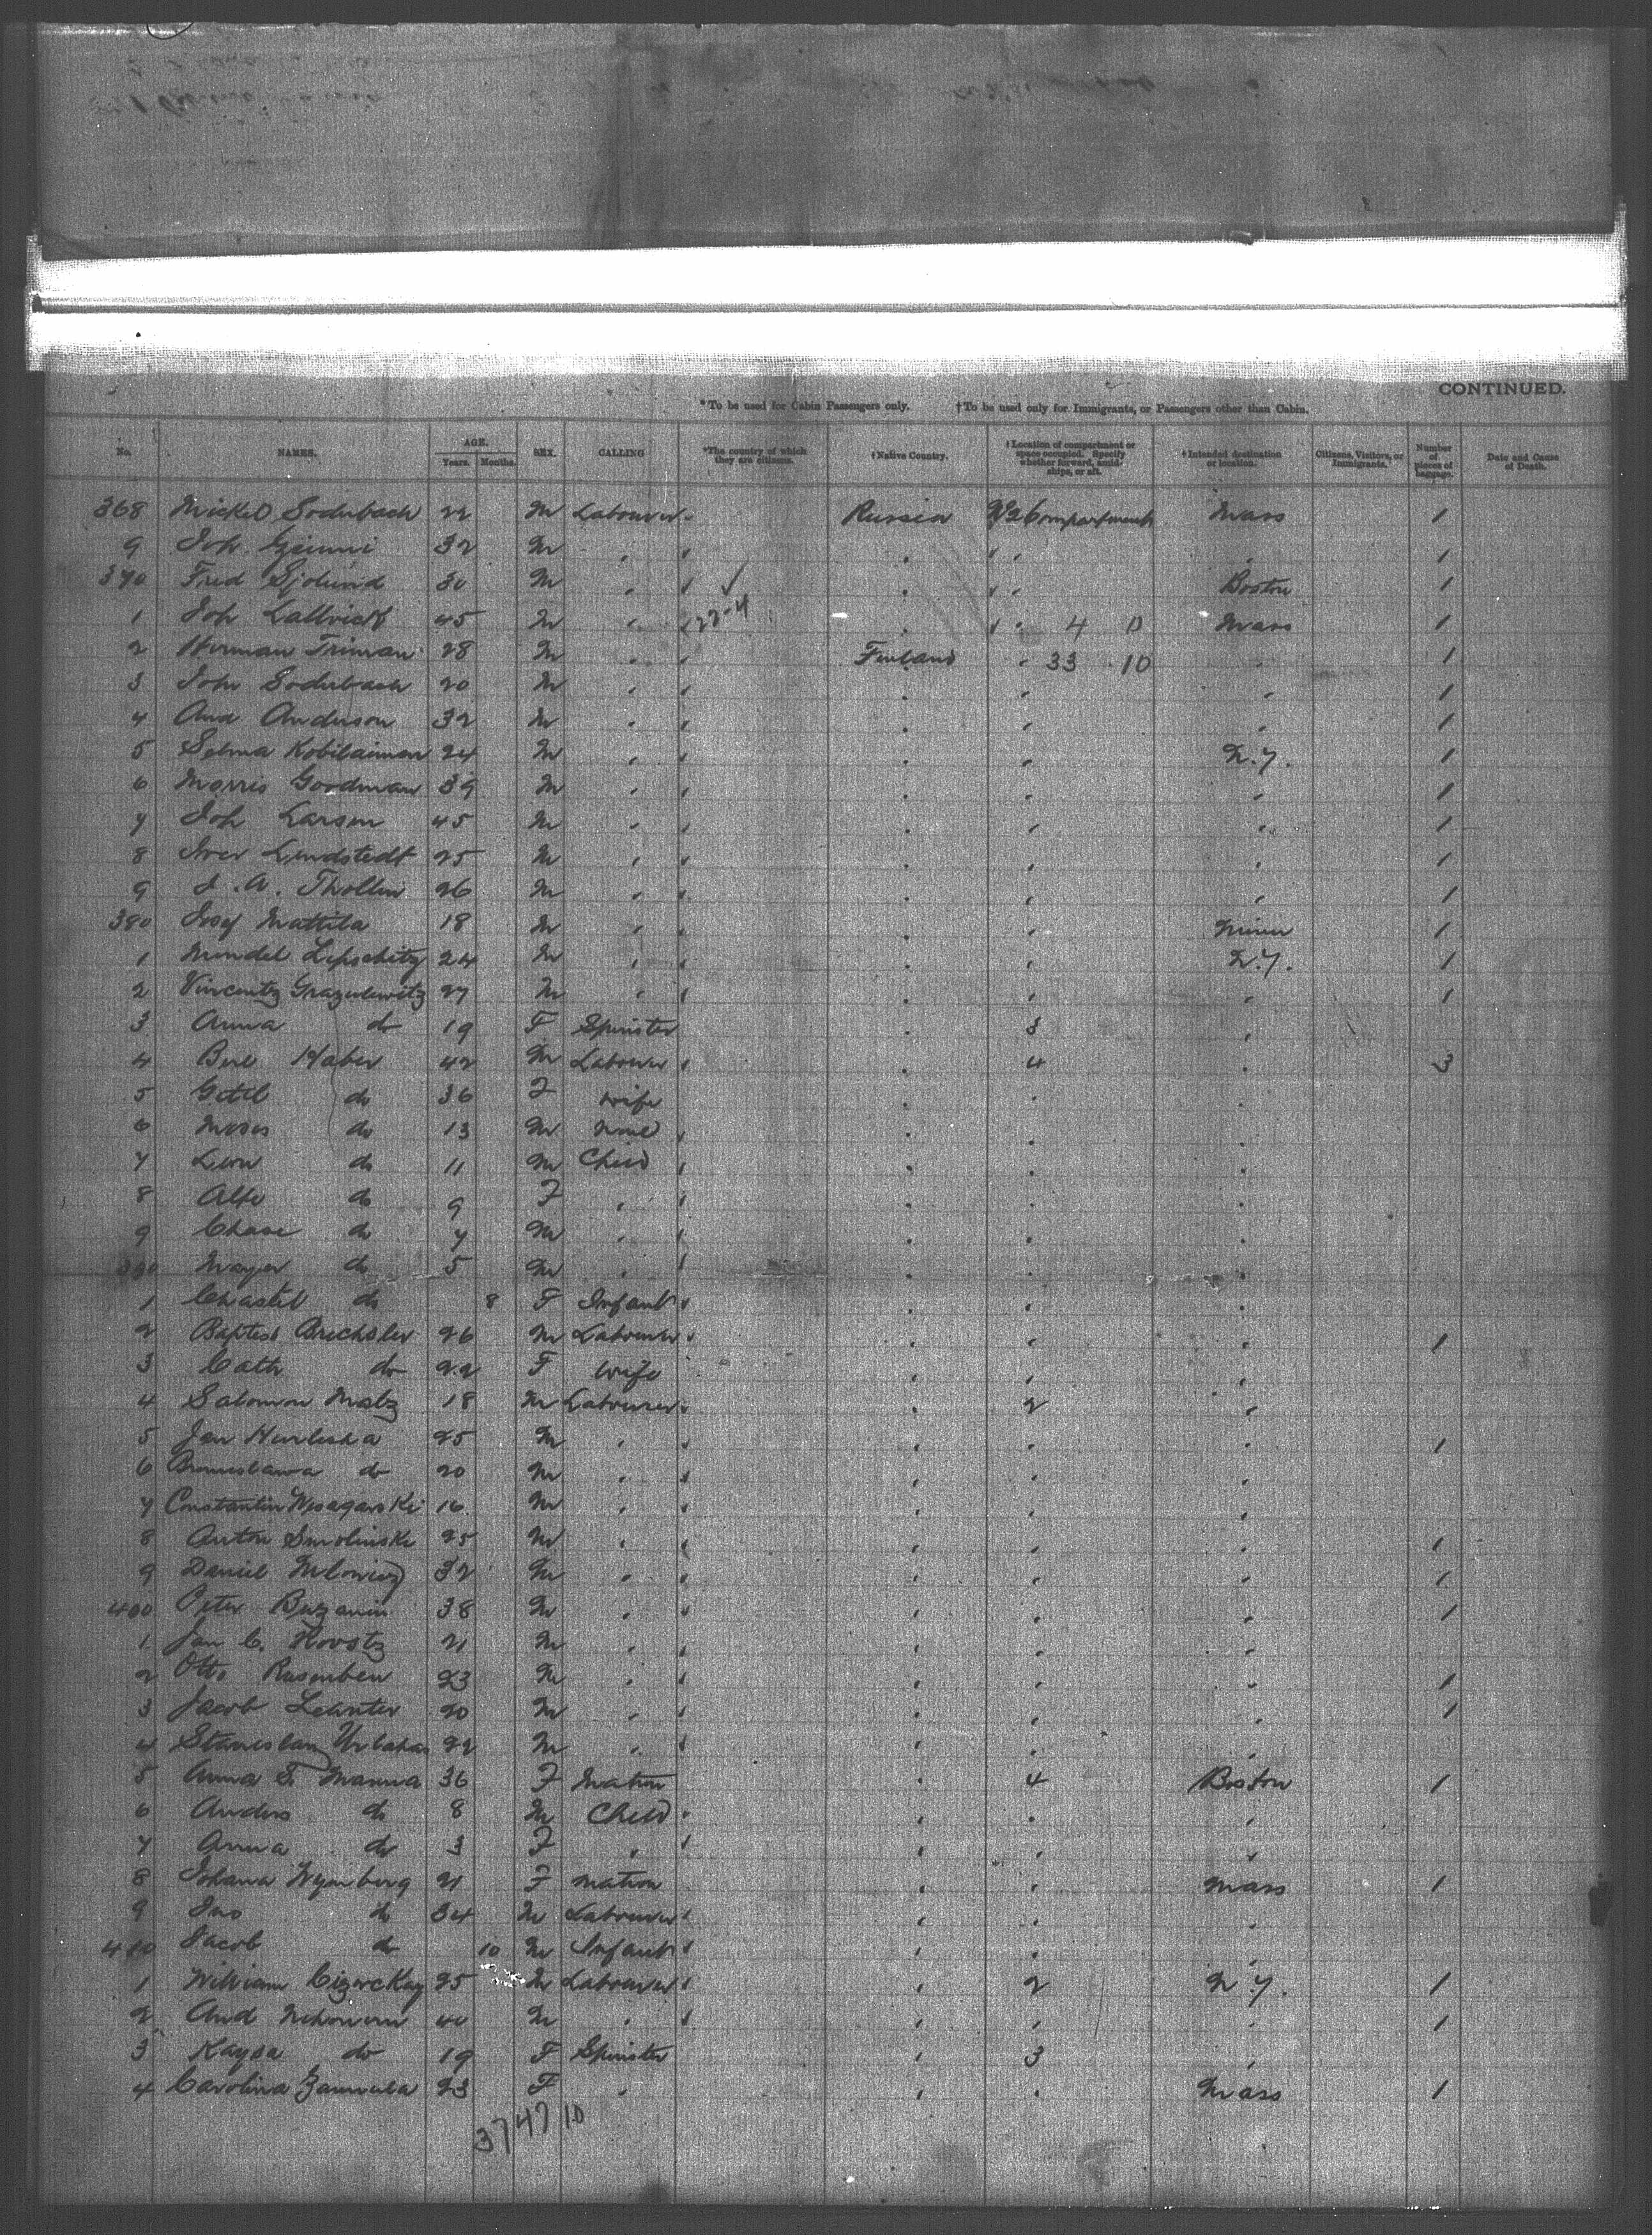 CONTINUED.
*To be used for Cabin Passengers only. †To be used only for Immigrants, or Passengers other than Cabin.
No. NAMES. AGE. Years. Months. SEX. CALLING *The country of which they are citizens. †Native Country. †Location of compartment or space occupied. Specify whether forward, amidships, or aft. †Intended destination or location. Citizens, Visitors, or Immigrants. Number of pieces of baggage. Date and Cause of Death.
368 Mickel Soderbach 22 M Labourer Russia Compartment Mass 1
9 Joh. 32 M " " " " 1
370 Fred Sjolund 30 M " ✓ " " Boston 1
1 Joh 45 M " 22-4 " " 4 D Mass 1
2 Herman Triman 28 M " Finland " 33 10 " 1
3 Joh Soderbach 20 M " " " " 1
4 And Anderson 32 M " " " " 1
5 Selma 24 M " " " N.Y. 1
6 Morris Goodman 39 M " " " " 1
7 Joh Larsen 45 M " " " " 1
8 Iver Lindstedt 25 M " " " " 1
9 J. A. Thollin 26 M " " " " 1
380 Josef Mattila 18 M " " " Minn 1
1 Mendel Lipschitz 24 M " " " N.Y. 1
2 Vincentz Grazulewitz 27 M " " " " 1
3 Anna do 19 F Spinster " 3 "
4 Berl Haber 42 M Labourer " 4 " 3
5 Gitel do 36 F Wife " " "
6 Moses do 13 M None " " "
7 Leon do 11 M Child " " "
8 Alte do 9 F " " " "
9 Chase do 7 M " " " "
390 Mayer do 5 M " " " "
1 Chastel do 8 F Infant " " "
2 Baptist Brechsler 26 M Labourer " " " 1
3 Cath do 22 F Wife " " "
4 Salomon Malz 18 M Labourer " 2 "
5 Jan 25 M " " " " 1
6 Bronislawa do 20 M " " " "
7 Constantin 16 M " " " "
8 Anton Smolinski 25 M " " " " 1
9 Daniel 32 M " " " " 1
400 Peter 38 M " " " " 1
1 Jan C. 21 M " " " "
2 Otto 23 M " " " " 1
3 Jacob 20 M " " " " 1
4 Stanislaus 22 M " " " "
5 Anna S. Manna 36 F Matron " 4 Boston 1
6 Anders do 8 M Child " " "
7 Anna do 3 F " " " "
8 Johana 21 F Matron " " Mass 1
9 Jno do 34 M Labourer " " "
410 Jacob do 10 M Infant " " "
1 William 25 M Labourer " 2 N.Y. 1
2 And 40 M " " " " 1
3 Kaysa do 19 F Spinster " 3 "
4 Carolina 23 F " " " Mass 1
3747 10